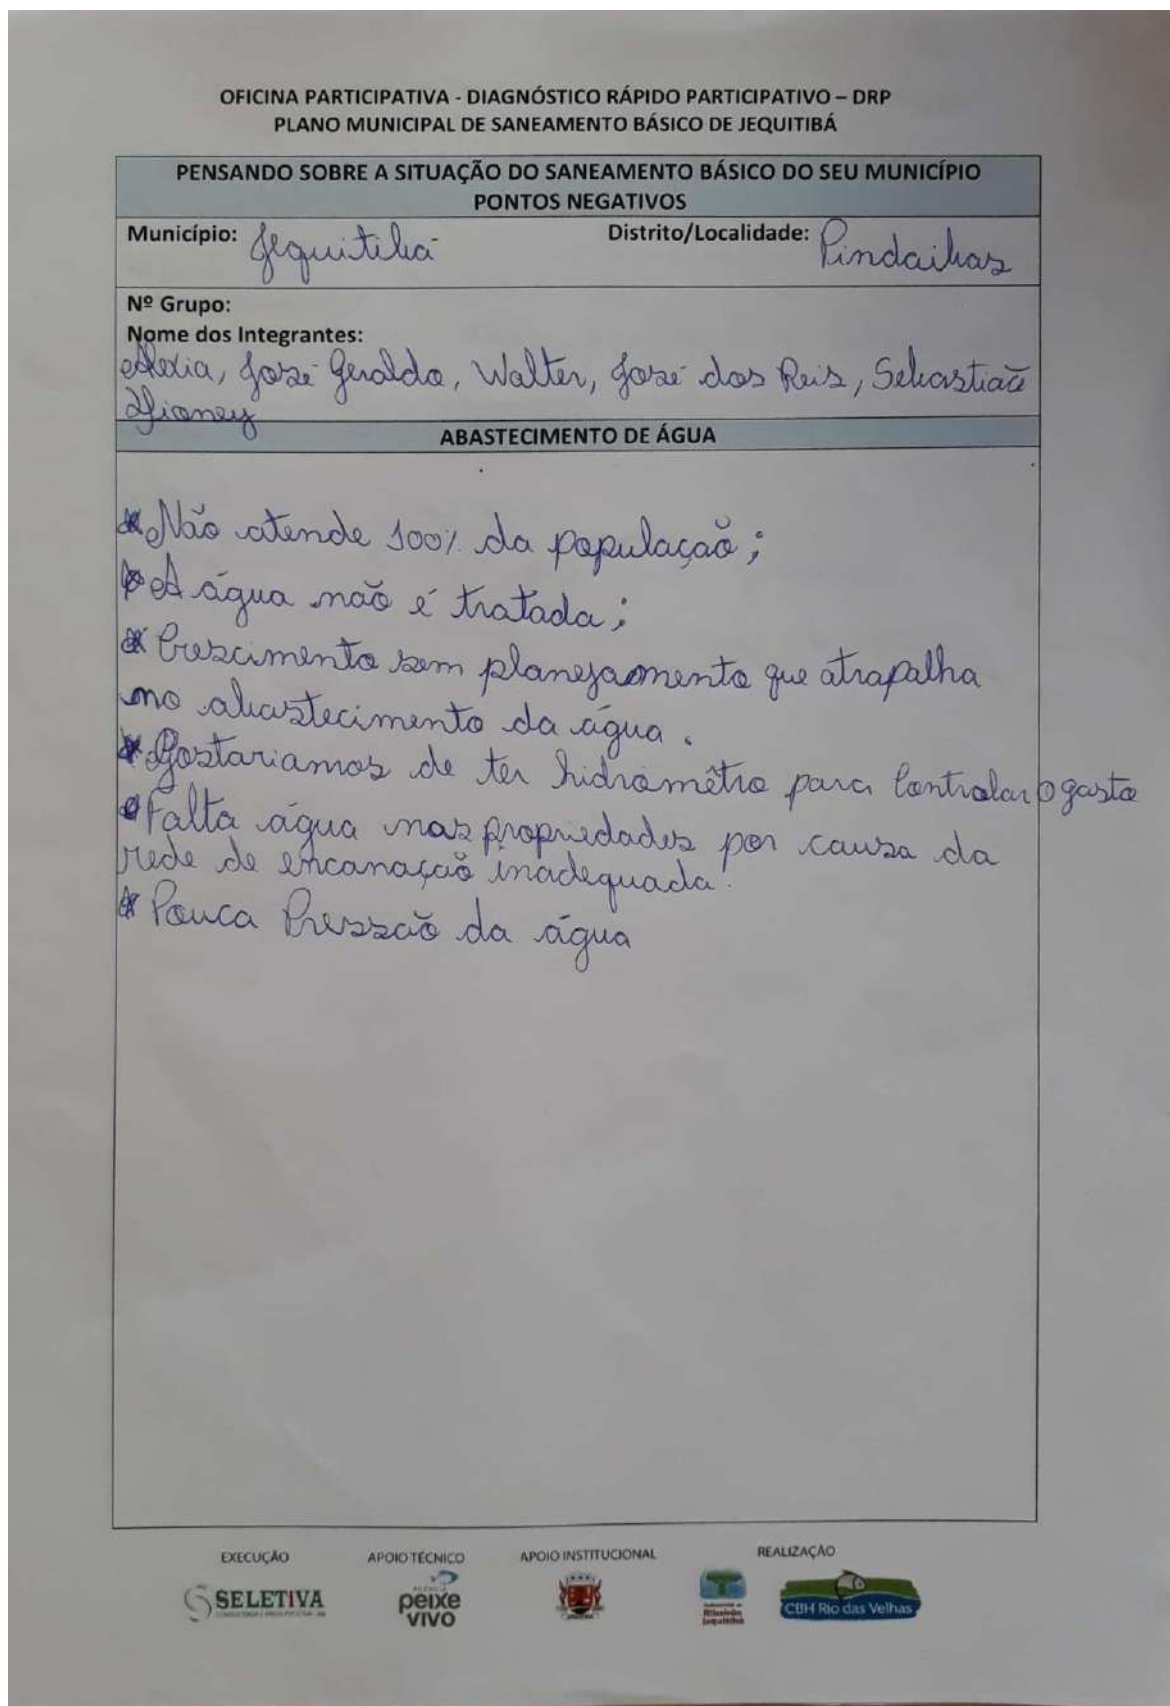 OFICINA PARTICIPATIVA - DIAGNÓSTICO RÁPIDO PARTICIPATIVO – DRP
PLANO MUNICIPAL DE SANEAMENTO BÁSICO DE JEQUITIBÁ
PENSANDO SOBRE A SITUAÇÃO DO SANEAMENTO BÁSICO DO SEU MUNICÍPIO
PONTOS NEGATIVOS
Município: Jequitibá Distrito/Localidade: Pindaibas
Nº Grupo:
Nome dos Integrantes:
Alexia, José Geraldo, Walter, José dos Reis, Sebastião
ABASTECIMENTO DE ÁGUA
* Não atende 100% da população;
* A água não é tratada;
* Crescimento sem planejamento que atrapalha
no abastecimento da água.
* Gostariamos de ter hidromêtro para controlar o gasto
* Falta água nas propriedades por causa da
rede de encanação inadequada.
* Pouca Pressão da água
EXECUÇÃO APOIO TÉCNICO APOIO INSTITUCIONAL REALIZAÇÃO
SELETIVA AGÊNCIA peixe vivo Ribeirão Jequitibá CBH Rio das Velhas